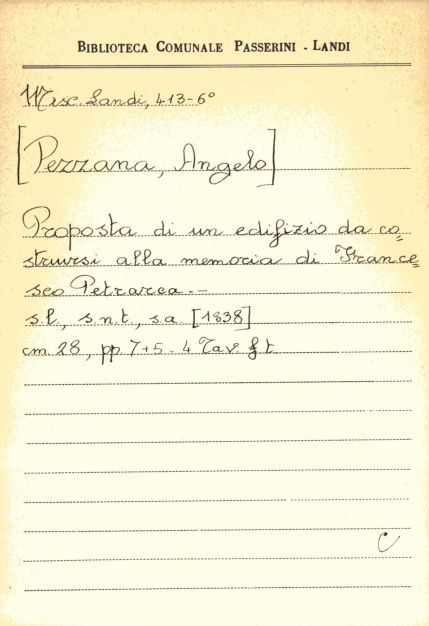 BIBLIOTECA COMUNALE PASSERINI - LANDI
Misc. Landi, 413-6°
[Pezzana, Angelo]
Proposta di un edifizio da co=
struirsi alla memoria di France=
sco Petrarca.-
s.l., s.n.t., s.a. [1838]
cm. 28, pp. 7+5 - 4 Tav. f. t.
C